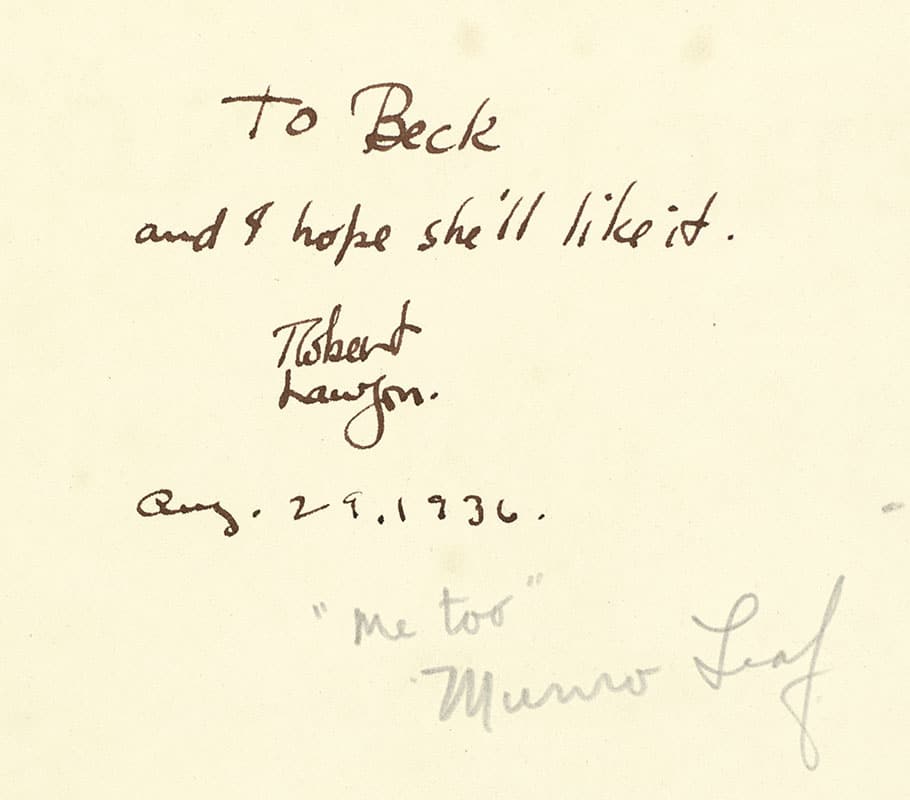 To Beck
and I hope she'll like it.
Robert
Lawson.
Aug. 29, 1936.
"me too"
Munro Leaf